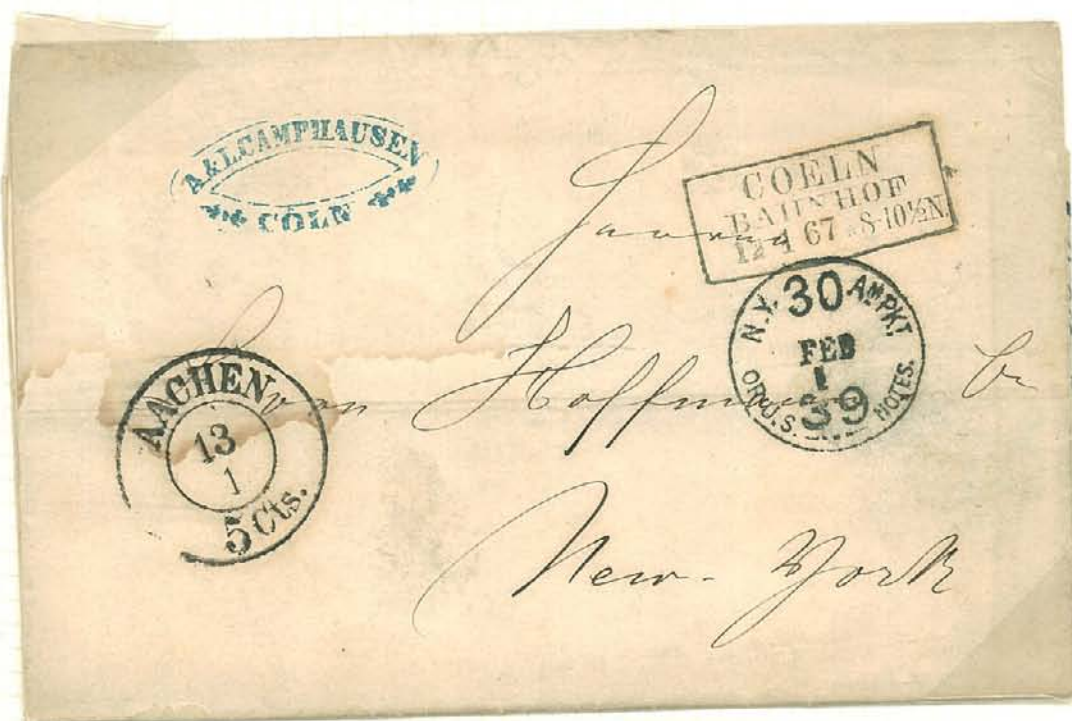 A&L CAMPHAUSEN
CÖLN
COELN
BAHNHOF
12 1 67 8-10½N.
N.Y. 30 AM PKT
FEB
1
39
OR U.S. NOTES.
AACHEN
13
1
5 Cts.
Hoffmann
New-York